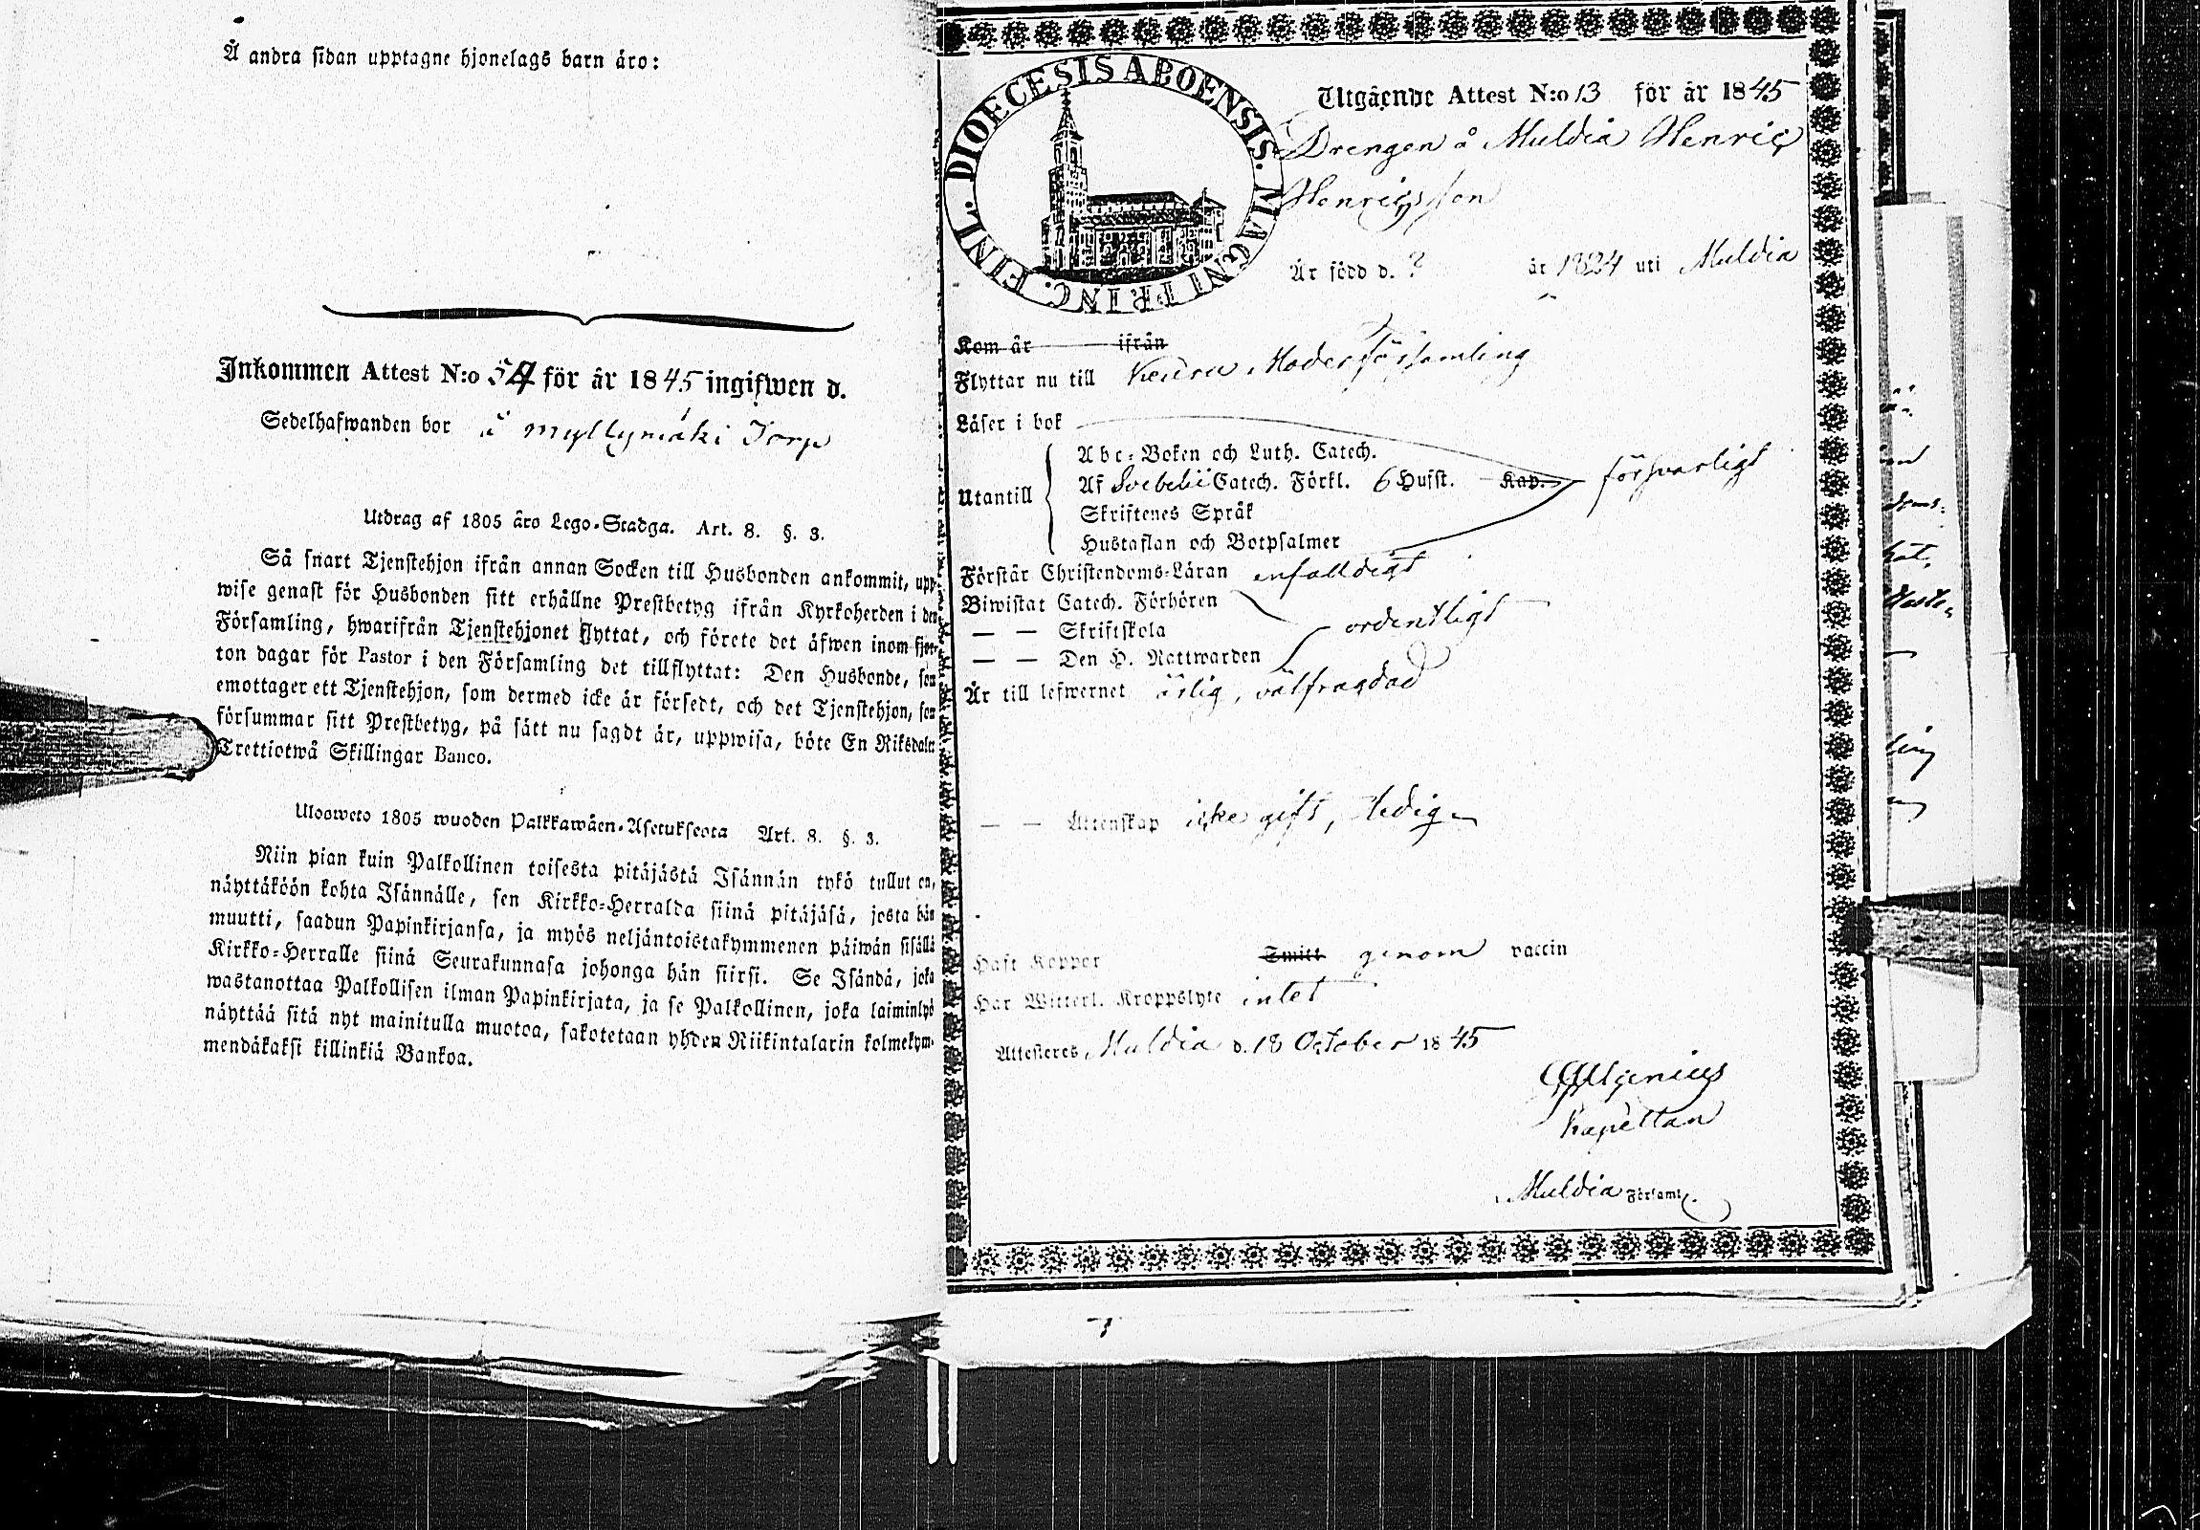 Å andra sidan upptagne hjonelags barn äro:
Inkommen Attest N:o 54 för år 1845 ingifwen d.
Sedelhafwanden bor å Myllymäki Torp
Utdrag af 1805 års Lego-Stadga. Art. 8. §. 3.
Så snart Tjenstehjon ifrån annan Socken till Husbonden ankommit, upp-
wise genast för Husbonden sitt erhållne Prestbetyg ifrån Kyrkoherden i den
Församling, hwarifrån Tjenstehjonet flyttat, och förete det äfwen inom fjor-
ton dagar för Pastor i den Församling det tillflyttat: Den Husbonde, som
emottager ett Tjenstehjon, som dermed icke är försedt, och det Tjenstehjon, som
försummar sitt Prestbetyg, på sätt nu sagdt är, uppwisa, böte En Riksdaler
Trettiotwå Skillingar Banco.
Ulosweto 1805 wuoden Palkkawäen-Asetuksesta Art. 8. §. 3.
Niin pian kuin Palkollinen toisesta pitäjästä Isännän tykö tullut on,
näyttäköön kohta Isännälle, sen Kirkko-Herralda siinä pitäjäsä, josta hän
muutti, saadun Papinkirjansa, ja myös neljäntoistakymmenen päiwän sisällä
Kirkko-Herralle siinä Seurakunnasa johonga hän siirsi. Se Isändä, joka
wastanottaa Palkollisen ilman Papinkirjata, ja se Palkollinen, joka laiminlyö
näyttää sitä nyt mainitulla muotoa, sakotetaan yhden Riikintalarin kolmekym-
mendäkaksi killinkiä Bankoa.
DIOECESIS ABOENSIS. MAGNI PRINC. FINL.
Utgående Attest N:o 13 för år 1845
Drengen å Muldia Henric
Henricsson
Är född d. ? år 1824 uti Muldia
Kom år ifrån
Flyttar nu till Keuru Moderförsamling
Läser i bok
Abc-Boken och Luth. Catech.
Utantill Af Svebelii Catech. Förkl. 6 Hufst. Kap. försvarligt
Skriftenes Språk
Hustaflan och Botpsalmer
Förstår Christendoms-Läran enfalldigt
Biwistat Catech. Förhören
— — Skriftskola ordentligt
— — Den H. Nattwarden
Är till lefwernet ärlig, välfragdad
— — Äktenskap icke gift, ledig
Haft Koppor Smitt genom vaccin
Har Witterl. Kroppslyte intet
Attesteres Muldia d. 18 October 1845
Kapellan
Muldia Församl.